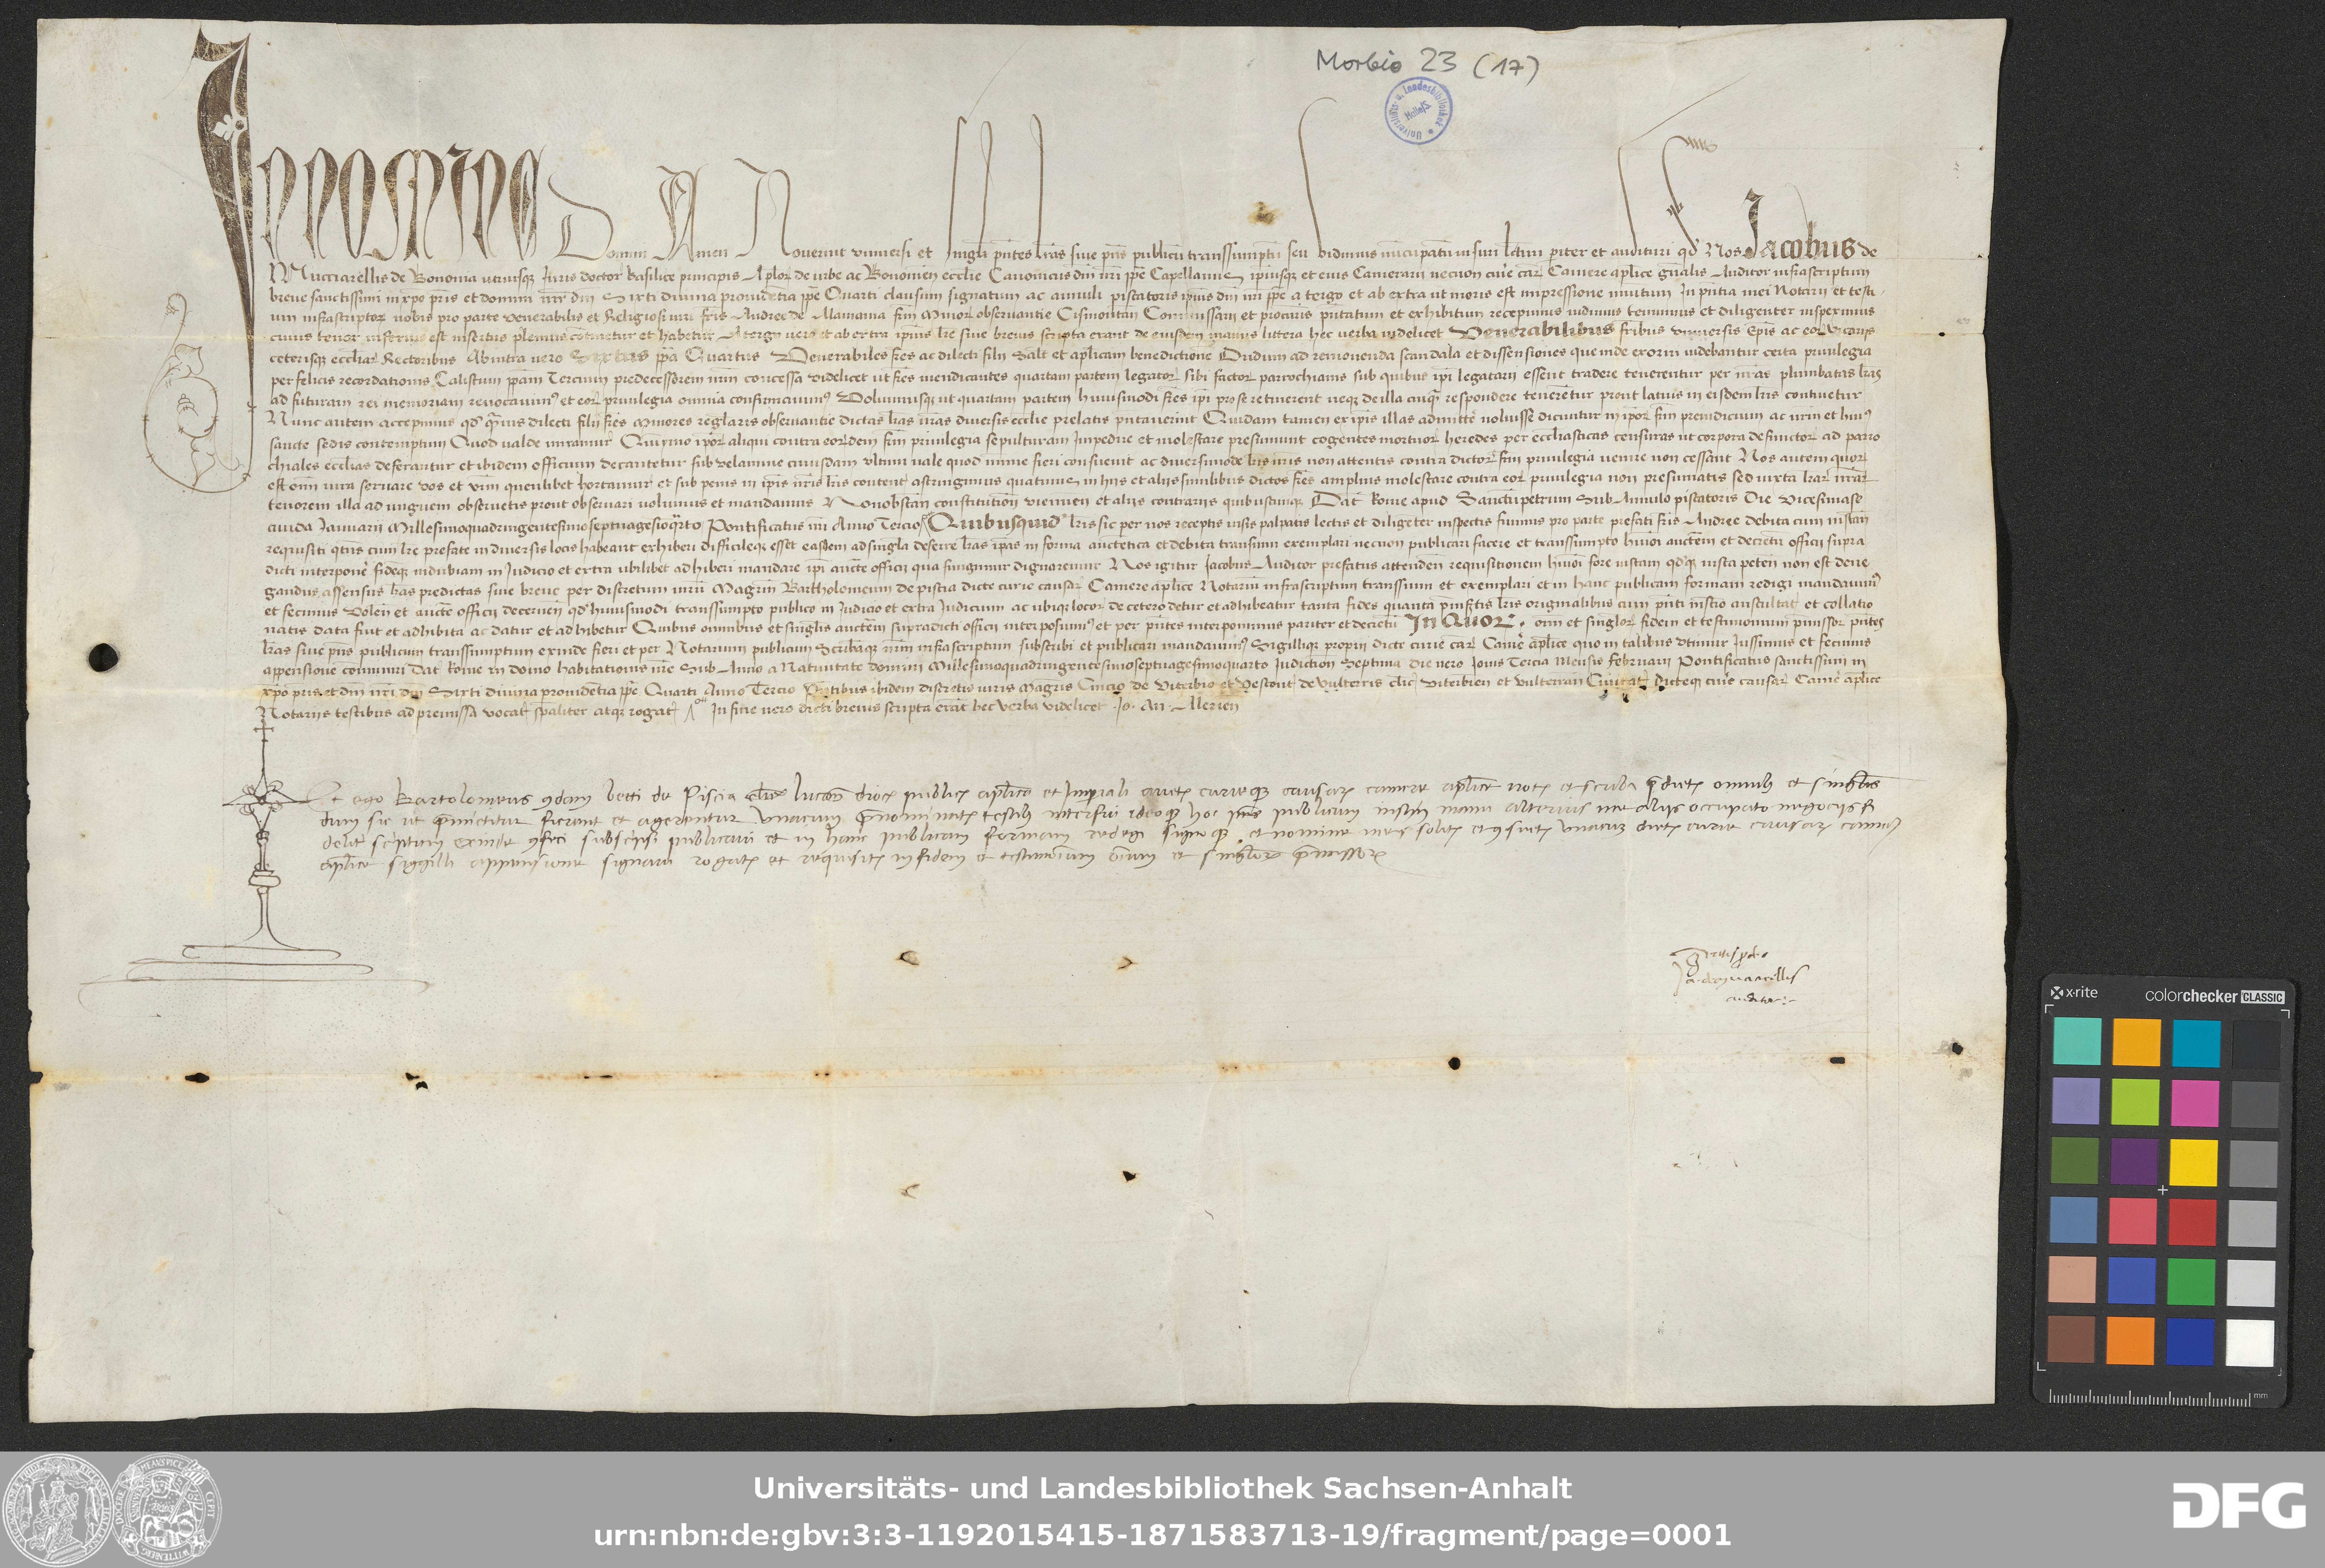 Morbio 23 (17)
IN NOMINE Domini Amen Noverint universi et singuli pñtes lras sive pñs publicũ transsumptũ seu vidimus nũcupatũ visuri lecturi pariter et audituri qd Nos Jacobus de
Mucciarellis de Bononia utriusqȝ Juris doctor basilice principis Aploꝝ de urbe ac Bononieñ ecclie Canonicus dñi nri ppe Capellanus ipsiusqȝ et eius Camerarij necnon curie caꝝ Camere aplice gñalis Auditor infrascriptum
breve sanctissimi in xpo pris et domini nri dñi Sixti divina providẽtia ppe Quarti clausum signatum ac annuli piscatoris ipsius dñi nri ppe a tergo et ab extra ut moris est impressione munitum In pñtia mei Notarij et testi
um infrascriptoꝝ nobis pro parte venerabilis et Religiosi viri fris Andree de Alamania frm Minoꝝ observantie Cismontañ Commissarij et procuris pñtatum et exhibitum recepimus vidimus tenuimus et diligenter inspeximus
cuius tenor inferius est insertus plenius cõtinetur et habetur A tergo vero et ab extra ipsius lre sive brevis scripta erant de eiusdem manus littera hec verba videlicet Venerabilibus fribus universis Epis ac eoꝝ vicarijs
ceterisqȝ eccliaꝝ Rectoribus Ab intra vero Sixtus ppa Quartus Venerabiles fres ac dilecti filij Salt et aplicam benedictionẽ Dudum ad removenda scandala et dissensiones que inde exoriri videbantur certa privilegia
per felicis recordationis Calistum ppam Tercium predecessorem nrm concessa videlicet ut fres mendicantes quartam partem legatoꝝ sibi factoꝝ parrochianis sub quibus ipi legatarij essent tradere tenerentur per nras plumbatas lras
ad futuram rei memoriam revocavimus et eoꝝ privilegia omnia confirmavimus Volumusqȝ ut quartam partem huiusmodi fres ipi pro se retinerent neqȝ de illa cuiqȝ respondere tenerẽtur prout latius in eisdem lris continetur
Nunc autem accepimus qd qvis dilecti filij fres Minores reglaris observantie dictas lras nras diversis ecclie prelatis pñtaverint Quidam tamen ex ipis illas admittẽ noluisse dicuntur in ipoꝝ frm preiudicium ac nrm et huius
sancte sedis contemptum Quod valde miramur Quiymo ipoꝝ aliqui contra eordem frm privilegia sepulturam impedire et molestare presumunt cogentes mortuoꝝ heredes per ecclesiasticas censuras ut corpora defunctoꝝ ad parro
chiales ecclias deferantur et ibidem officium decantetur sub velamine cuiusdam ultimi vale quod mime fieri consuevit ac diversimode lris nris non attentis contra dictoꝝ frm privilegia venire non cessant Nos autem quoꝝ
est oim iura servare vos et vrm quenlibet hortamur et sub penis in ipis nris lris content astringimus quatinus in hijs et alijs similibus dictos fres amplius molestare contra eoꝝ privilegia non presumatis sed iuxta lraꝝ nraꝝ
tenorem illa ad unguem observetis prout observari volumus et mandamus Nonobstañ constitutioñ vieñ et alijs contrarijs quibuscumqȝ Dat Rome apud Sanctũ petrum Sub Annulo piscatoris Die Vicesimase
cunda Januarij Millesimoquadringentesimoseptuagesimoqrto Pontificatus nri Anno Tercio Quibusquidẽ lris sic per nos receptis visis palpatis lectis et diligẽter inspectis fuimus pro parte prefati fris Andree debita cum instañ
requisiti qtns cum lre prefate in diversis locis habeant exhiberi difficileqȝ esset easdem ad singla deferre lras ipas in forma auctẽtica et debita transumi exemplari necnon publicari facere et transsumpto hmoi auctẽm et decretũ officij supra
dicti interponẽ fidẽqȝ indubiam in Judicio et extra ubilibet adhiberi mandare ipi aucte officij qua fungimur dignaremur Nos igitur Jacobus Auditor prefatus attendeñ requisitionem hmoi fore iustam qdqȝ iusta peteñ non est dene
gandus assensus lras predictas sive breve per discretum virũ Magrm Bartholomeum de piscia dicte curie causaꝝ Camere aplice Notariũ infrascriptum transsumi et exemplari et in hanc publicam formam redigi mandavimus
et fecimus Voleñ et aucte officij decerneñ qd huiusmodi transsumpto publico in Judicio et extra Judicium ac ubiqȝ locoꝝ de cetero detur et adhibeatur tanta fides quanta pinsertis lris originalibus cum pñti instro auscultat et collatio
natis data fuit et adhibita ac datur et adhibetur Quibus omnibus et singlis auctẽm supradicti officij interposuimus et per pñtes interponimus pariter et decretũ In Quoꝝ oim et singloꝝ fidem et testimonium pmissoꝝ pñtes
lras sive pñs publicum transsumptum exinde fieri et per Notarum publicum Scribaqȝ nrm infrascriptum subscribi et publicari mandavimus Sigilliqȝ proprij dicte curie caꝝ Camẽ aplice quo in talibus utimur Jussimus et fecimus
appensione cõmuniri Dat Rome in domo habitationis nre Sub Anno a Nativitate domini Millesimoquadringentesimoseptuagesimoquarto Indictioñ Septima Die vero Jovis Tercia Mensis februarij Pontificatus sanctissimi in
xpo pris et dñi nri dñi Sixti divina providẽtia ppe Quarti Anno Tercio Pñtibus ibidem discretis viris Magris Cincio de Viterbio et de Vulterris clic Viterbieñ et Vulterrañ Civitat dicteqȝ curie causaꝝ Camẽ aplice
Notarijs testibus ad premissa vocat spaliter atqȝ rogat In fine vero dicti brevis scripta erãt hec verba videlicet Jo. An. Alerieñ
Et ego Bartolomeus qdam betti de Piscia clicus lucañ dioc publicꝰ aplica et Impiali auctẽ curieqȝ causaꝝ camere aplice notꝰ et scriba qr dictis omnibꝰ et singlis
dum sic ut pmictitur fierent et agerentur unacum pnominatis testibꝰ interfui ideoqȝ hoc pñs publicum instrm manu alterius me alijs occupato negocijs fi
delit scriptum exinde qfeci subscripsi publicavi et in hanc publicam formam redegi signoqȝ et nomine meis solitis et qsuetis unacum dicte curie causaꝝ camẽ
aplice siggilli appensione signavi rogatꝰ et requisitꝰ in fidem et testimonium oium et singloꝝ pmissoꝝ
Ja. de mucciarellis
auditor
x-rite
colorchecker CLASSIC
mm
Universitäts- und Landesbibliothek Sachsen-Anhalt
urn:nbn:de:gbv:3:3-1192015415-1871583713-19/fragment/page=0001
DFG